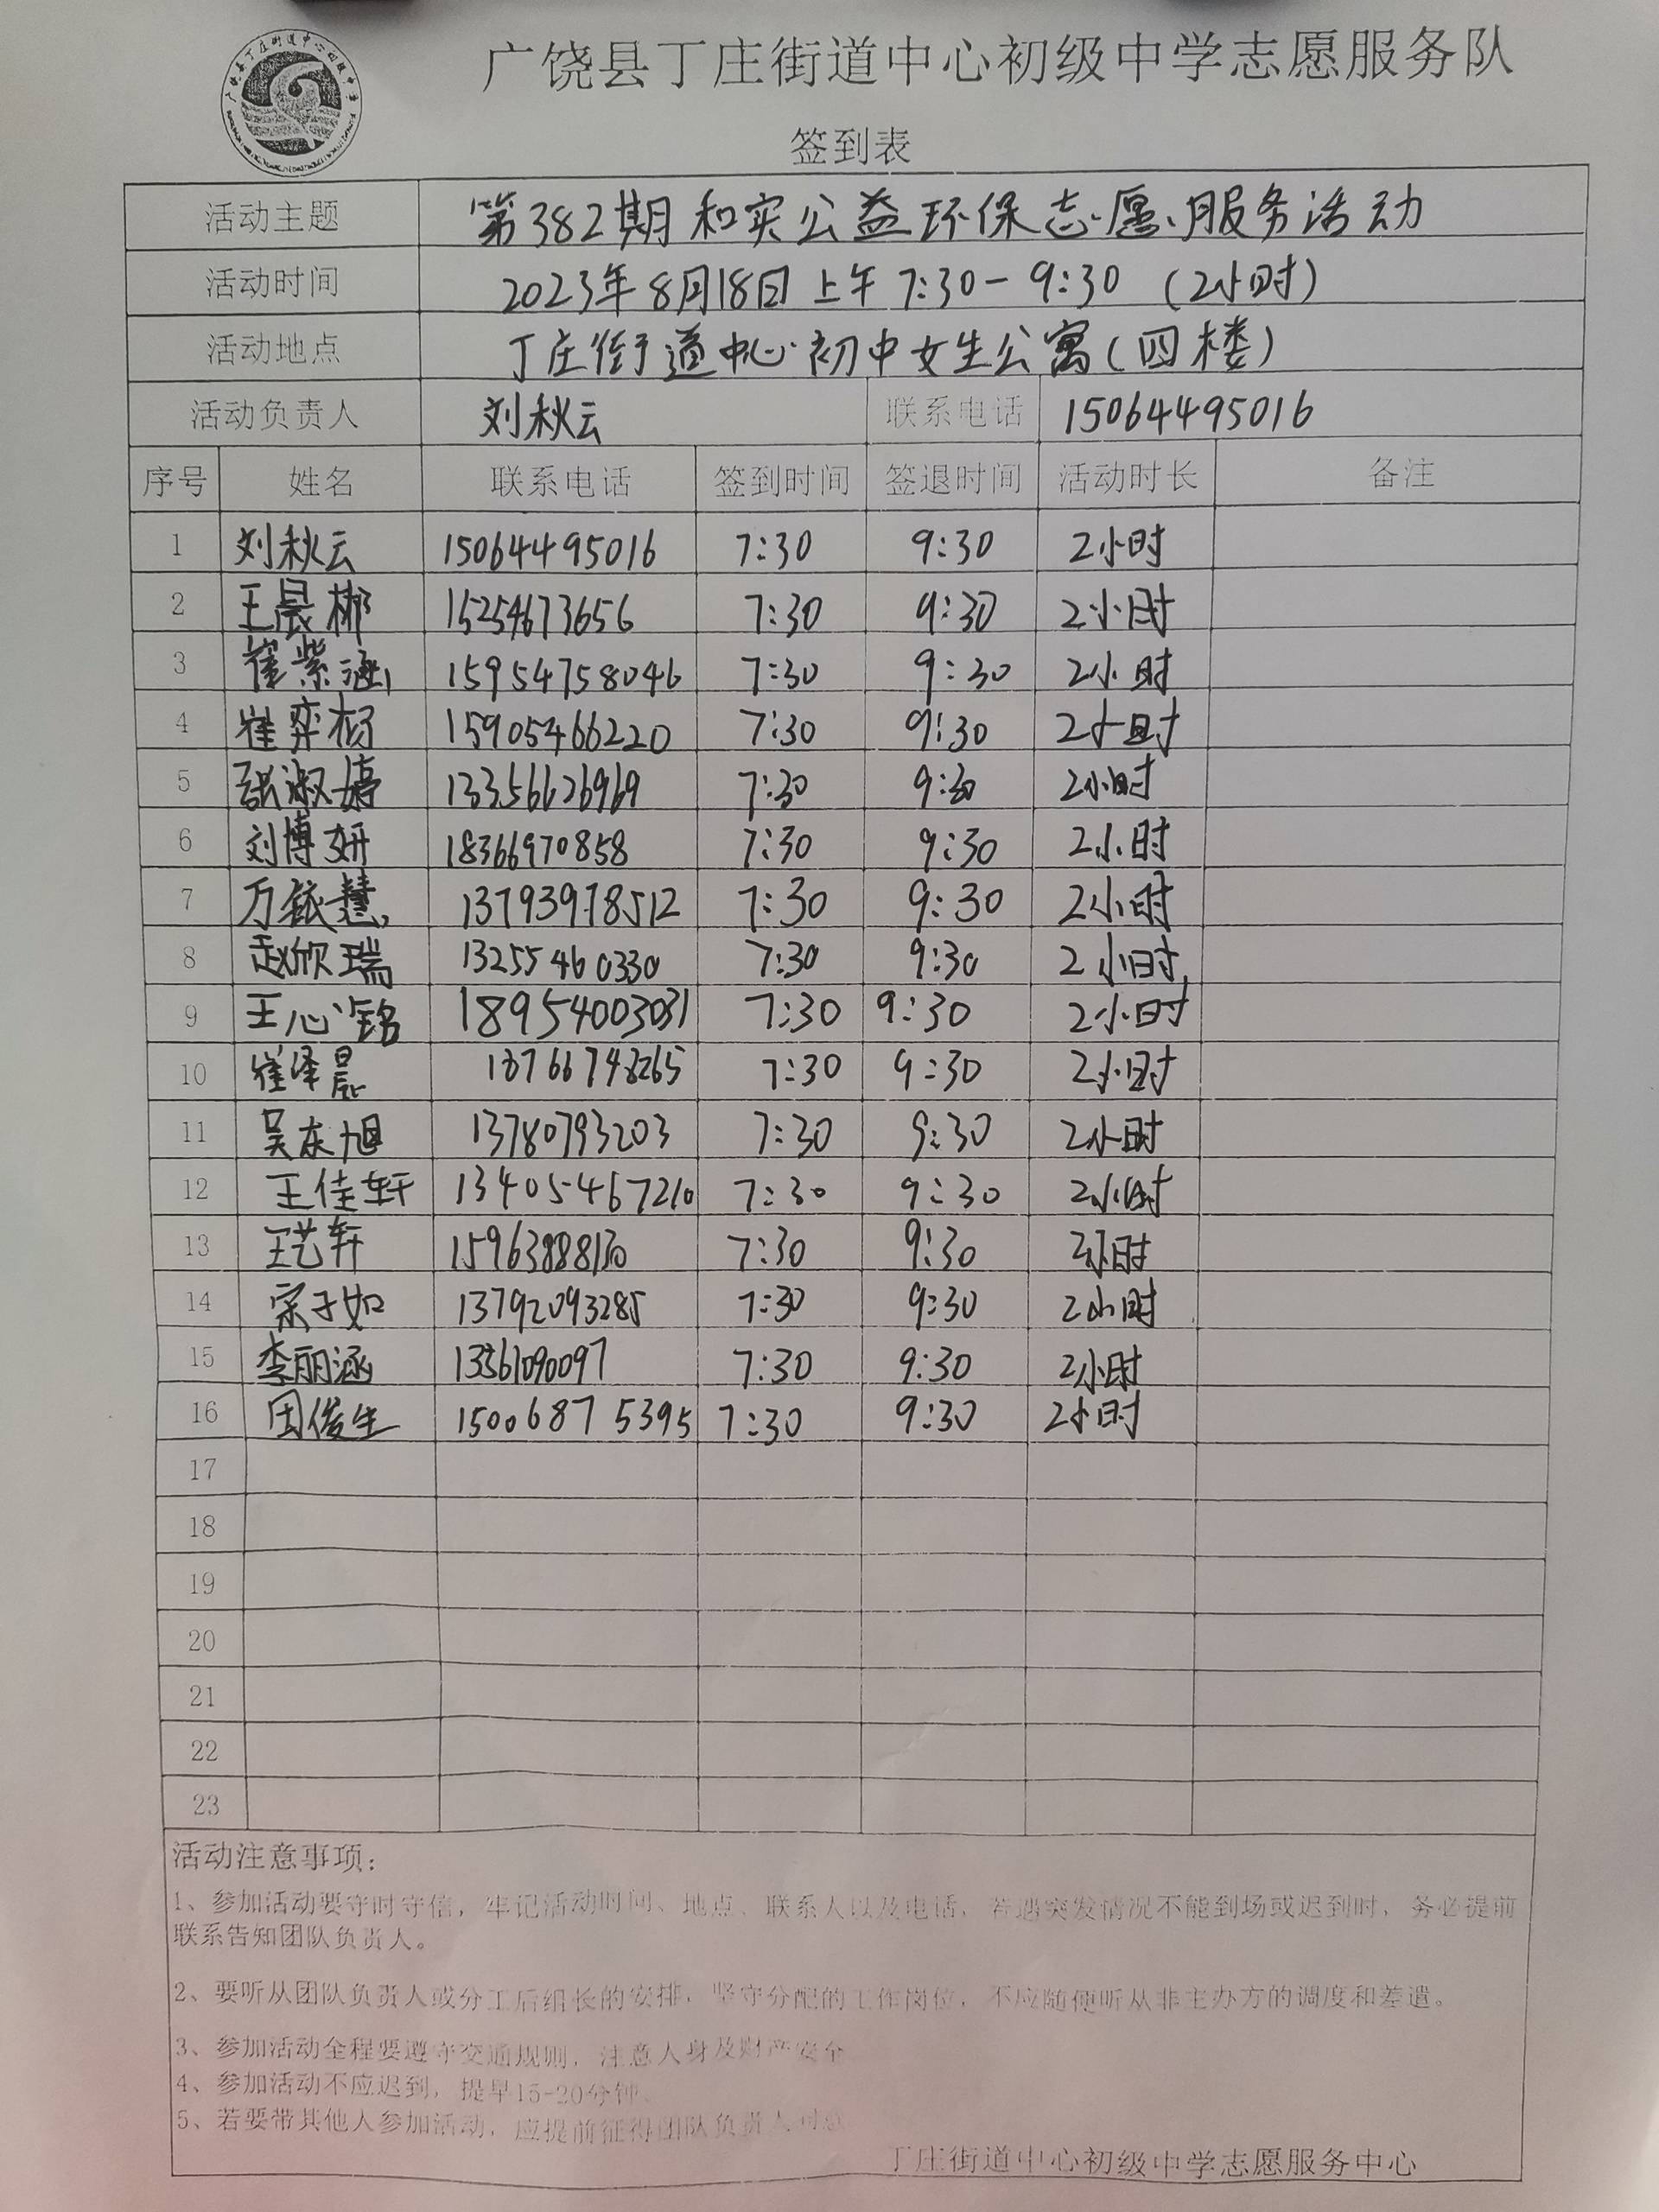 广饶县丁庄街道中心初级中学志愿服务队
签到表
活动主题 第382期和实公益环保志愿服务活动
活动时间 2023年8月18日上午7:30-9:30（2小时）
活动地点 丁庄街道中心初中女生公寓(四楼)
活动负责人 刘秋云 联系电话 15064495016
序号 姓名 联系电话 签到时间 签退时间 活动时长 备注
1 刘秋云 15064495016 7:30 9:30 2小时
2 王晨郴 15254673656 7:30 9:30 2小时
3 崔紫涵 15954758046 7:30 9:30 2小时
4 崔弈杨 15905466220 7:30 9:30 2小时
5 张淑婷 13356626969 7:30 9:30 2小时
6 刘博妍 18366970858 7:30 9:30 2小时
7 万铱慧 13793978512 7:30 9:30 2小时
8 赵欣瑞 13255460330 7:30 9:30 2小时
9 王心铭 18954003031 7:30 9:30 2小时
10 崔泽晨 7:30 9:30 2小时
11 吴东旭 13780793203 7:30 9:30 2小时
12 王佳轩 13405467210 7:30 9:30 2小时
13 王艺轩 15963888130 7:30 9:30 2小时
14 宗子如 13792093285 7:30 9:30 2小时
15 李丽涵 13361090097 7:30 9:30 2小时
16 田俊生 15006875395 7:30 9:30 2小时
17
18
19
20
21
22
23
活动注意事项：
1、参加活动要守时守信，牢记活动时间、地点、联系人以及电话，若遇突发情况不能到场或迟到时，务必提前
联系告知团队负责人。
2、要听从团队负责人或分工后组长的安排，坚守分配的工作岗位，不应随便听从非主办方的调度和差遣。
3、参加活动全程要遵守交通规则，注意人身及财产安全
4、参加活动不应迟到，提早15-20分钟。
5、若要带其他人参加活动，应提前征得团队负责人同意
丁庄街道中心初级中学志愿服务中心